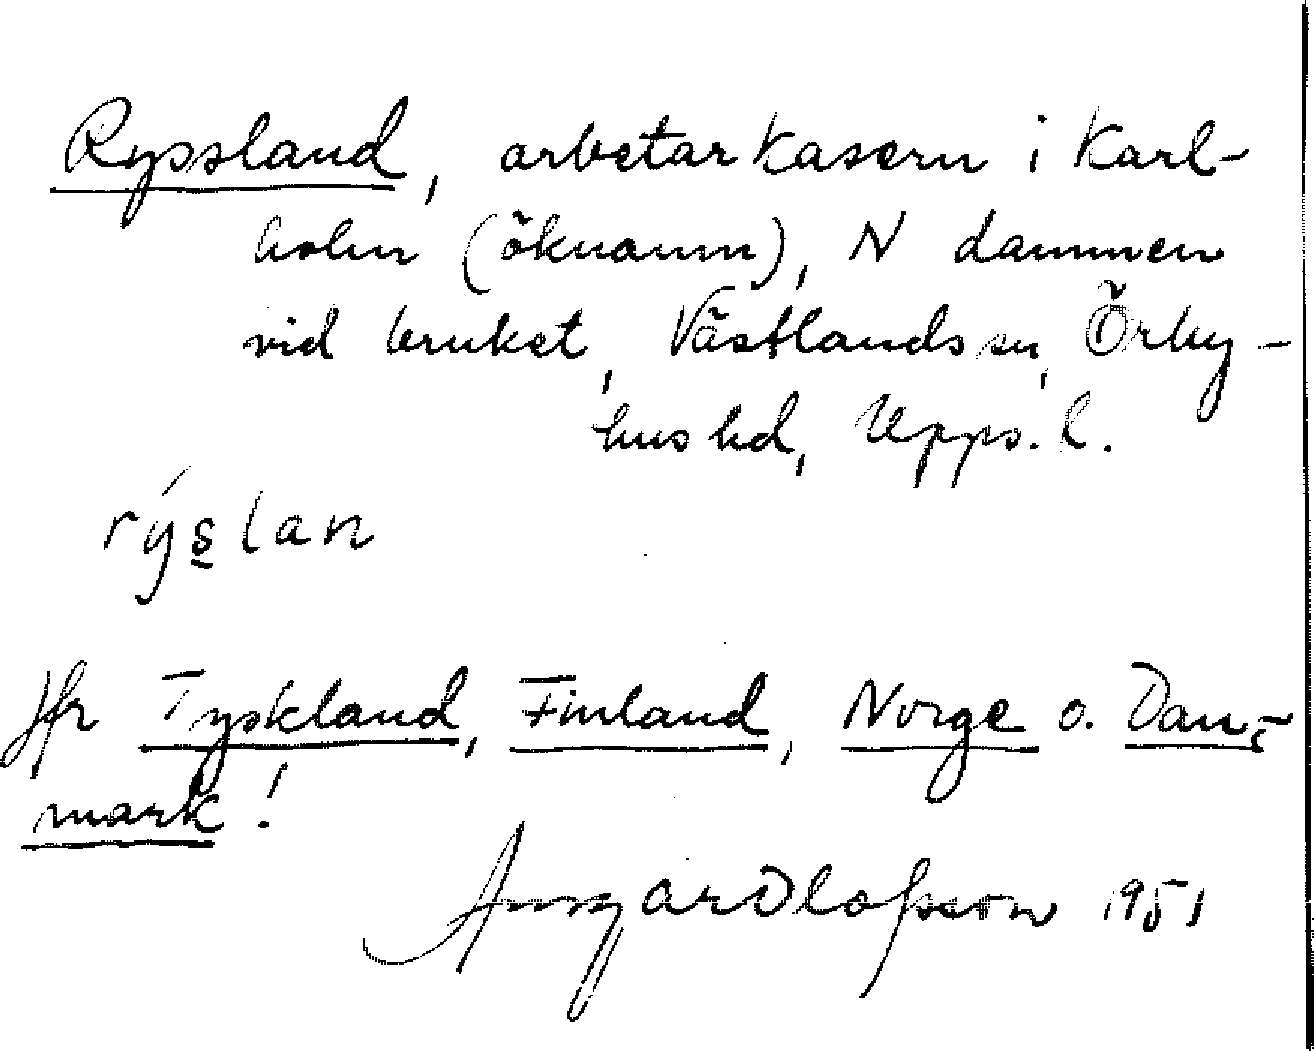 Ryssland, arbetarkasern i Karl-
holm (öknamn), N dammen
vid bruket, Västlands sn, Örby-
hus hd, Upps. l.
rýs̲lan
Jfr Tyskland, Finland, Norge o. Dan-
mark!
Ansgar Olofsson 1951